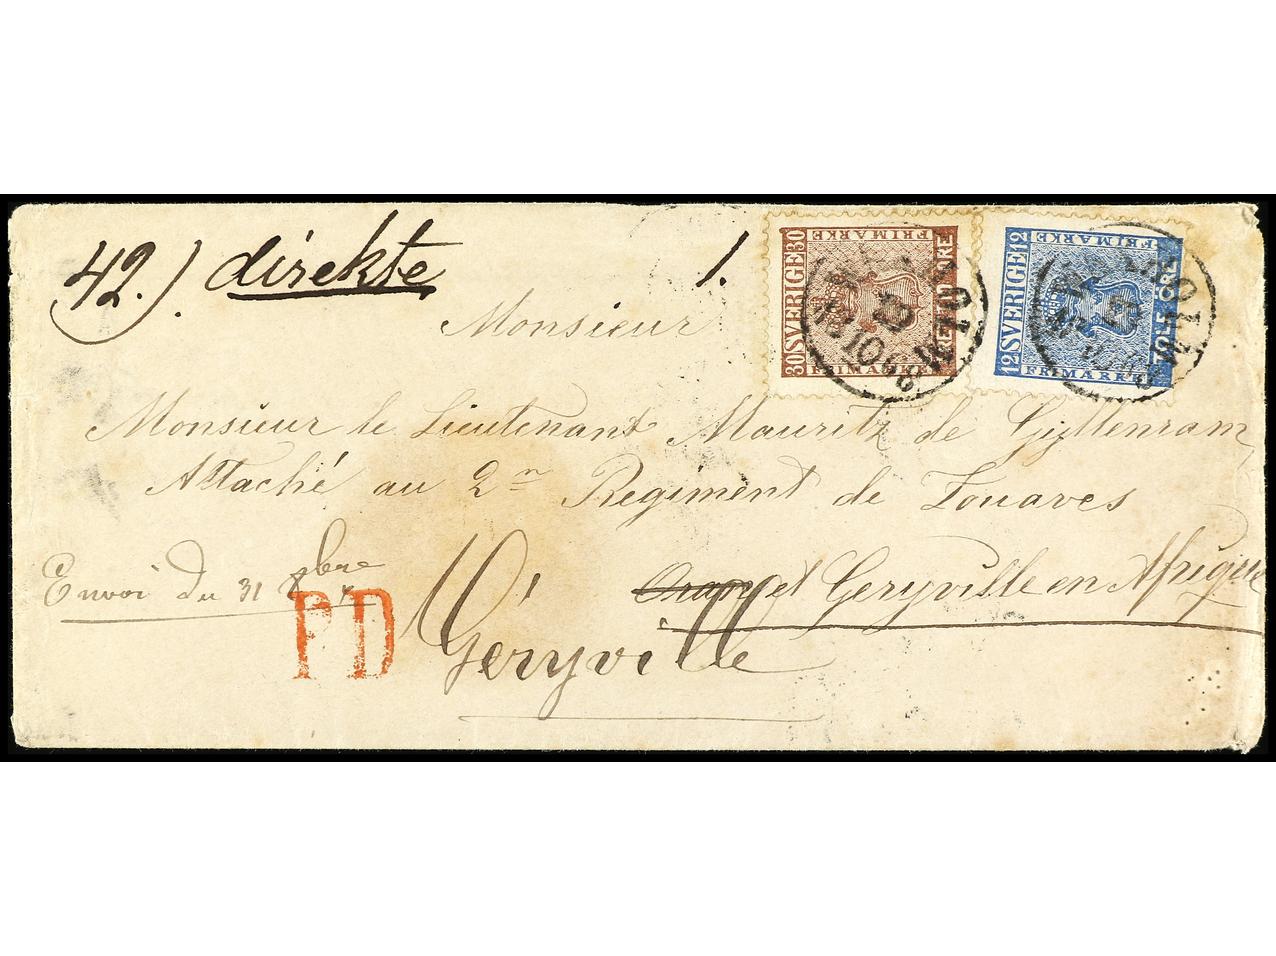 42.) direkte 1.
SVERIGE 30 30 FRIMARKE FRIMARKE ÖRE
SVERIGE 12 12 FRIMARKE FRIMARKE TOLF ÖRE
Monsieur
Monsieur le Lieutenant Mauritz de Gyllenram
Attaché au 2m Regiment de Zouaves
Envoi du 31 8bre
Geryville en Afrique
PD
Geryville